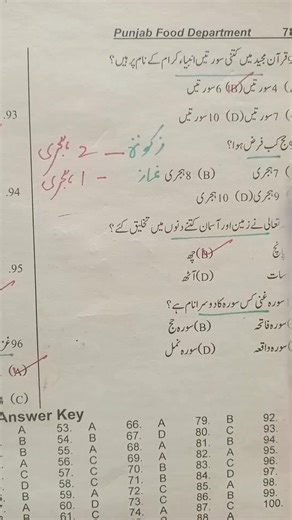 Punjab Food Department 78
قرآن مجید میں کتنی سورتیں انبیاء کرام کے نام پر ہیں؟
4 سورتیں (B) 6 سورتیں
.93
7 سورتیں (D) 10 سورتیں
حج کب فرض ہوا؟
زکوٰۃ — 2 ہجری
7 ہجری (B) 8 ہجری
نماز - 1 ہجری
.94
9 ہجری (D) 10 ہجری
تعالیٰ نے زمین اور آسمان کتنے دنوں میں تخلیق کئے؟
پانچ (B) چھ
.95
سات (D) آٹھ
سورہ غنی کس سورہ کا دوسرا نام ہے؟
سورہ فاتحہ (B) سورہ حج
.96
سورہ واقعہ (D) سورہ نمل
(A)
(C)
Answer Key
A 53. A 66. A 79. B 92.
B 54. B 67. D 80. C 93.
B 55. A 68. A 81. B 94.
A 56. C 69. A 82. A 95.
C 57. C 70. B 83. C 96.
D 58. C 71. B 84. D 97.
B 59. A 72. C 85. A 98.
A 60. D 73. C 86. B 99.
B 61. C 74. A 87. C 100.
88. A